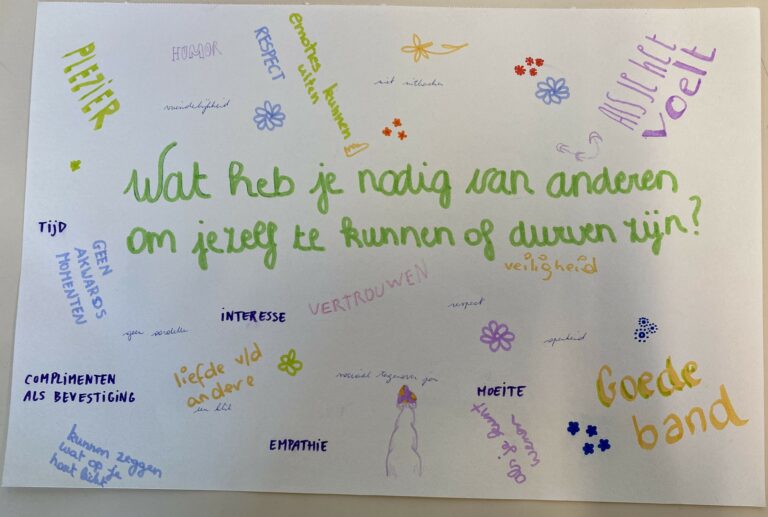 PLEZIER
HUMOR
RESPECT
emoties kunnen
uiten
niet uitlachen
Als je het
voelt
vriendelijkheid
Wat heb je nodig van anderen
om jezelf te kunnen of durven zijn?
TIJD
GEEN
AKWARDS
MOMENTEN
veiligheid
VERTROUWEN
INTERESSE
respect
geen oordelen
openheid
COMPLIMENTEN
ALS BEVESTIGING
liefde v/d
andere
tegenover
MOEITE
Goede
band
als je kunt
wenen
EMPATHIE
kunnen zeggen
wat op je
hart ligt